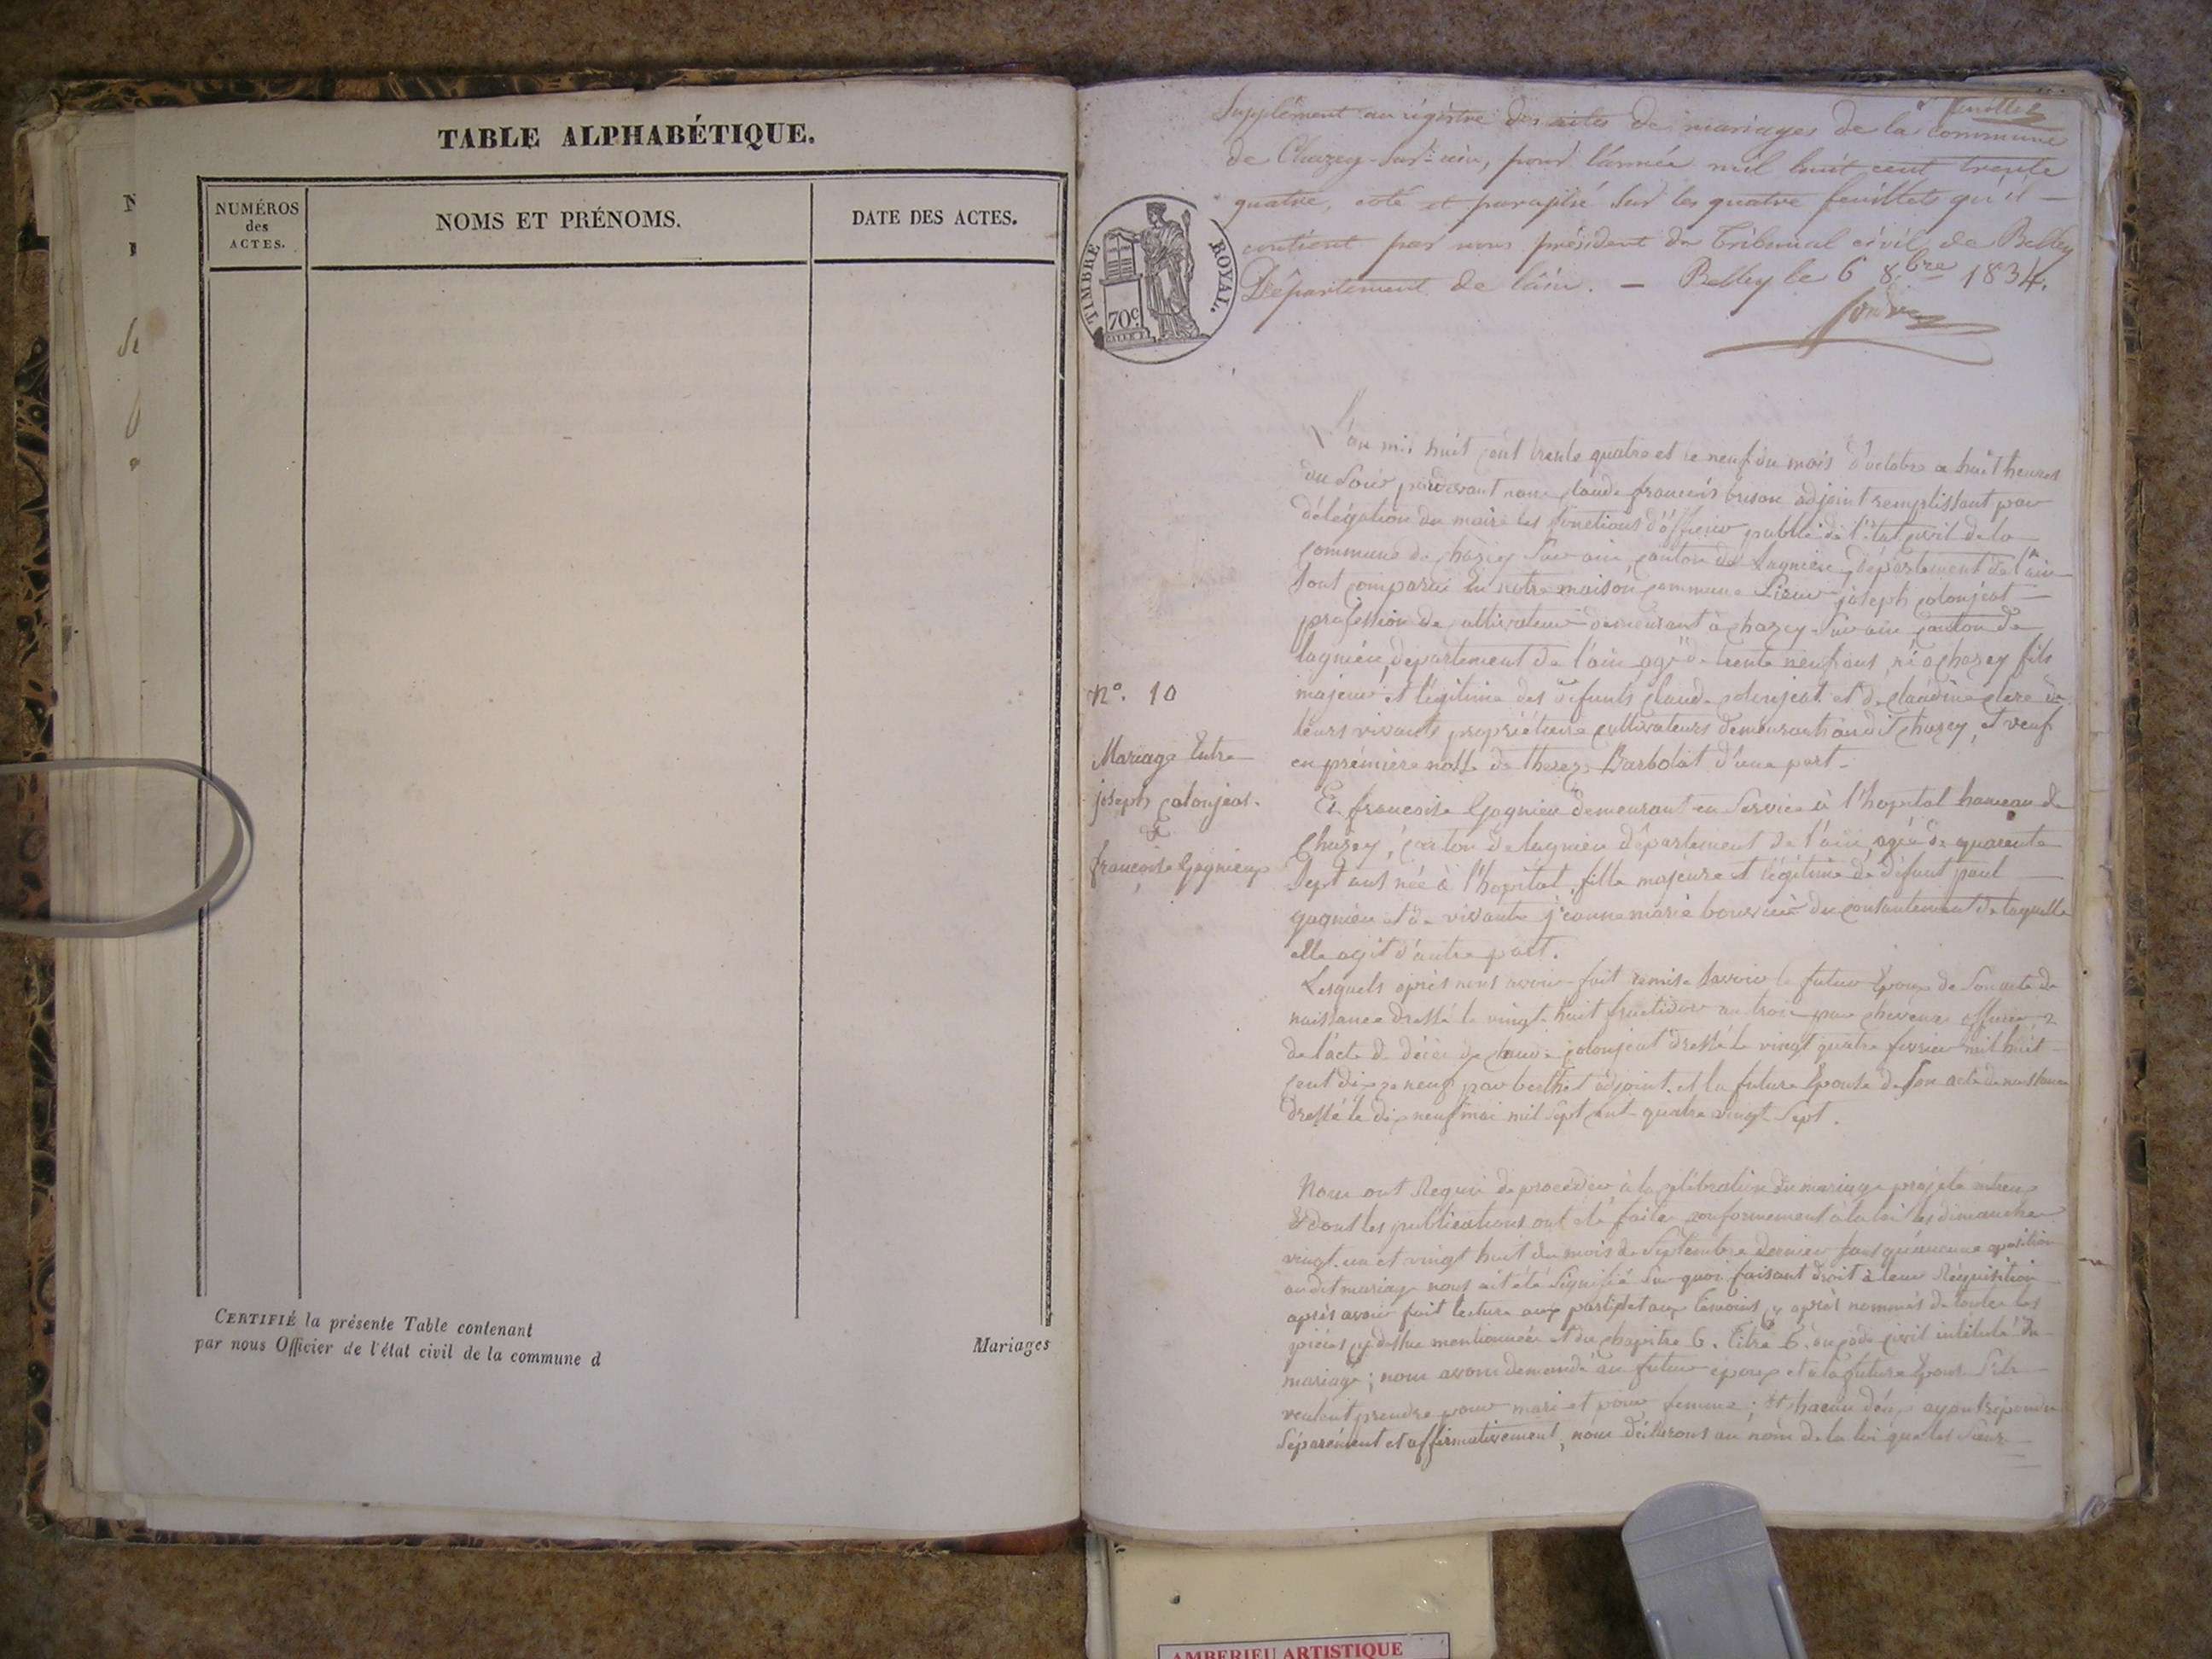 TABLE ALPHABÉTIQUE.
NUMÉROS
des
ACTES.
NOMS ET PRÉNOMS.
DATE DES ACTES.
CERTIFIÉ la présente Table contenant
par nous Officier de l'état civil de la commune d
Mariages
feuillet
Supplément au régistre des actes de mariages de la commune
de Chazey-sur-ain, pour l'année mil huit cent trente
quatre, coté et paraphé sur les quatre feuillets qu'il
contient par nous président du Tribunal civil de Belley
Département de l'ain. — Belley le 6 8.bre 1834.
TIMBRE ROYAL.
70c
L'an mil huit cent trente quatre et le neuf du mois d'octobre a huit heures
du soir pardevant nous claude françois buson adjoint remplissant par
délégation du maire les fonctions d'officier public de l'état civil de la
commune de chazey sur ain, canton de Lagnieu, département de l'ain
sont comparu en notre maison commune Sieur joseph colonjeat
profession de cultivateur demeurant à chazey sur ain canton de
lagnieu, département de l'ain agé de trente neuf ans, né a chazey fils
majeur et légitime des défunts claude colonjeat et de claudine clere de
leurs vivants propriétaire cultivateurs demeurant audit chazey, et veuf
en première nosse de therèze Barbolat d'une part.
N°. 10
Mariage Entre
joseph colonjeat.
&
françoise Gagnieux
Et francoise Gagnieu demeurant en service à l'hopital hameau de
Chazey, canton de lagnieu département de l'ain, agée de quarente
sept ans née à l'hopital, fille majeure et légitime de défunt paul
gagnieu et de vivante jeanne marie bouvier du consantement de laquelle
elle agit d'autre part.
Lesquels après nous avoir fait remise savoir le futur Epoux de son acte de
naissance dressé le vingt huit fructidor an trois par officier
de l'acte de décès de claude colonjeat dressé le vingt quatre fevrier mil huit
cent dix neuf par berthet adjoint. et la future Epouse de son acte de naissance
dressé le dix neuf mai mil sept cent quatre vingt sept.
Nous ont Requi de procéder à la célébration du mariage projeté entreux
& dont les publications ont été faite conformement à la loi les dimanches
vingt un et vingt huit du mois de Septembre dernier sans qu'aucune oposition
audit mariage nous ait été signifié sur quoi faisant droit à leur Réquisition
après avoir fait lecture aux parties et aux témoins cy après nommés de toutes les
pièces cy dessus mentionnées et du chapitre 6. titre 5. du code civil intitulé du
mariage; nous avons demandé au futur époux et à la future Epouse s'ils
veulent prendre pour mari et pour femme; & chacun d'eux ayant répondu
séparément et affirmativement, nous déclarons au nom de la loi que les Sieur
AMBERIEU ARTISTIQUE